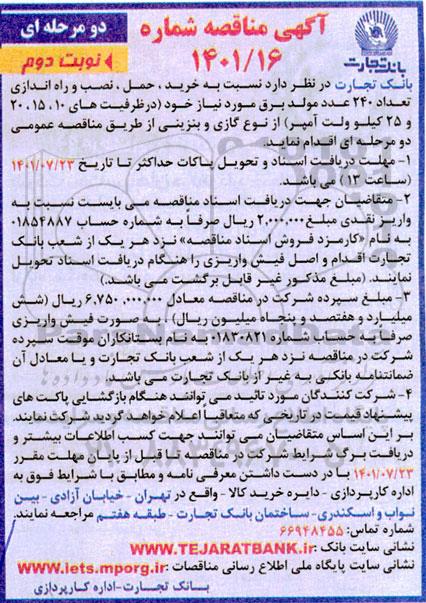 آگهی مناقصه شماره
۱۴۰۱/۱۶
دو مرحله ای
نوبت دوم
بانک تجارت
بانک تجارت در نظر دارد نسبت به خرید ، حمل ، نصب و راه اندازی
تعداد ۲۴۰ عدد مولد برق مورد نیاز خود (درظرفیت های ۱۰، ۱۵، ۲۰
و ۲۵ کیلو ولت آمپر) از نوع گازی و بنزینی از طریق مناقصه عمومی
دو مرحله ای اقدام نماید.
۱- مهلت دریافت اسناد و تحویل پاکات حداکثر تا تاریخ ۱۴۰۱/۰۷/۲۳
(ساعت ۱۳) می باشد.
۲- متقاضیان جهت دریافت اسناد مناقصه می بایست نسبت به
واریز نقدی مبلغ ۲,۰۰۰,۰۰۰ ریال صرفاً به شماره حساب ۰۱۸۵۴۸۸۷
به نام «کارمزد فروش اسناد مناقصه» نزد هر یک از شعب بانک
تجارت اقدام و اصل فیش واریزی را هنگام دریافت اسناد تحویل
نمایند. (مبلغ مذکور غیر قابل برگشت می باشد.)
۳- مبلغ سپرده شرکت در مناقصه معادل ۶,۷۵۰,۰۰۰,۰۰۰ ریال (شش
میلیارد و هفتصد و پنجاه میلیون ریال) ، به صورت فیش واریزی
صرفاً به حساب شماره ۰۱۸۳۰۸۲۱ به نام بستانکاران موقت سپرده
شرکت در مناقصه نزد هر یک از شعب بانک تجارت و یا معادل آن
ضمانتنامه بانکی به غیر از بانک تجارت می باشد.
۴- شرکت کنندگان مورد تائید می توانند هنگام بازگشایی پاکت های
پیشنهاد قیمت در تاریخی که متعاقباً اعلام خواهد گردید شرکت نمایند.
بر این اساس متقاضیان می توانند جهت کسب اطلاعات بیشتر و
دریافت برگ شرایط شرکت در مناقصه تا قبل از پایان مهلت مقرر
۱۴۰۱/۰۷/۲۳ با در دست داشتن معرفی نامه و مطابق با شرایط فوق به
اداره کارپردازی - دایره خرید کالا - واقع در تهران - خیابان آزادی - بین
نواب و اسکندری - ساختمان بانک تجارت - طبقه هفتم مراجعه نمایند.
شماره تماس: ۶۶۹۴۸۴۵۵
نشانی سایت بانک: WWW.TEJARATBANK.ir
نشانی سایت پایگاه ملی اطلاع رسانی مناقصات: www.iets.mporg.ir
بانک تجارت-اداره کارپردازی